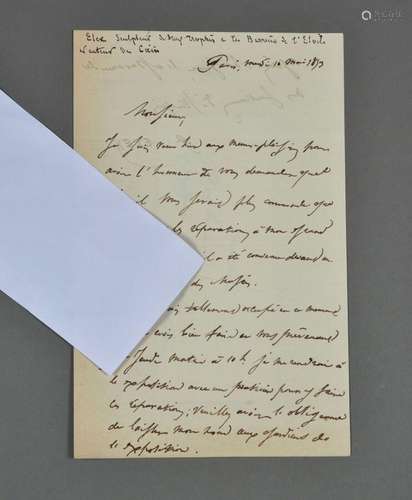 Etex Sculpteur de deux trophées à la Barrière de l'Etoile
auteur du Caïn
Paris, mardi 10 mai 1873
Monsieur
Je suis venu hier aux menus-plaisirs pour
avoir l'honneur de vous demander quel
il vous serait plus commode que
les réparations à mon
il a été convenu devant
des Musées.
tellement occupé en ce moment
crois bien faire en vous prévenant
Jeudi matin à 10h. je me rendrai à
l'exposition avec un praticien pour y faire
les réparations; veuillez avoir l'obligeance
de laisser mon nom aux gardiens de
l'exposition.